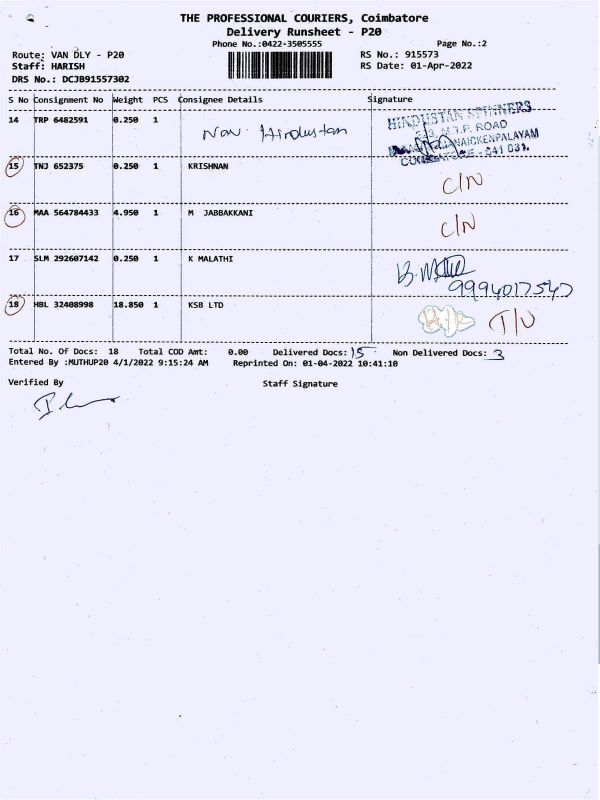 THE PROFESSIONAL COURIERS, Coimbatore
Delivery Runsheet - P20
Phone No.:0422-3505555
Page No.:2
Route: VAN DLY - P20
RS No.: 915573
Staff: HARISH
RS Date: 01-Apr-2022
DRS No.: DCJB91557302
S No Consignment No Weight PCS Consignee Details Signature
14 TRP 6482591 0.250 1 Hindustan
HINDUSTAN SPINNERS
M.T.P. ROAD
COIMBATORE - 641 031.
15 TNJ 652375 0.250 1 KRISHNAN C/N
16 MAA 564784433 4.950 1 M JABBAKKANI C/N
17 SLM 292607142 0.250 1 K MALATHI
9994017547
18 HBL 32408998 18.850 1 KSB LTD
Total No. Of Docs: 18 Total COD Amt: 0.00 Delivered Docs: 15 Non Delivered Docs: 3
Entered By :MUTHUP20 4/1/2022 9:15:24 AM Reprinted On: 01-04-2022 10:41:10
Verified By Staff Signature